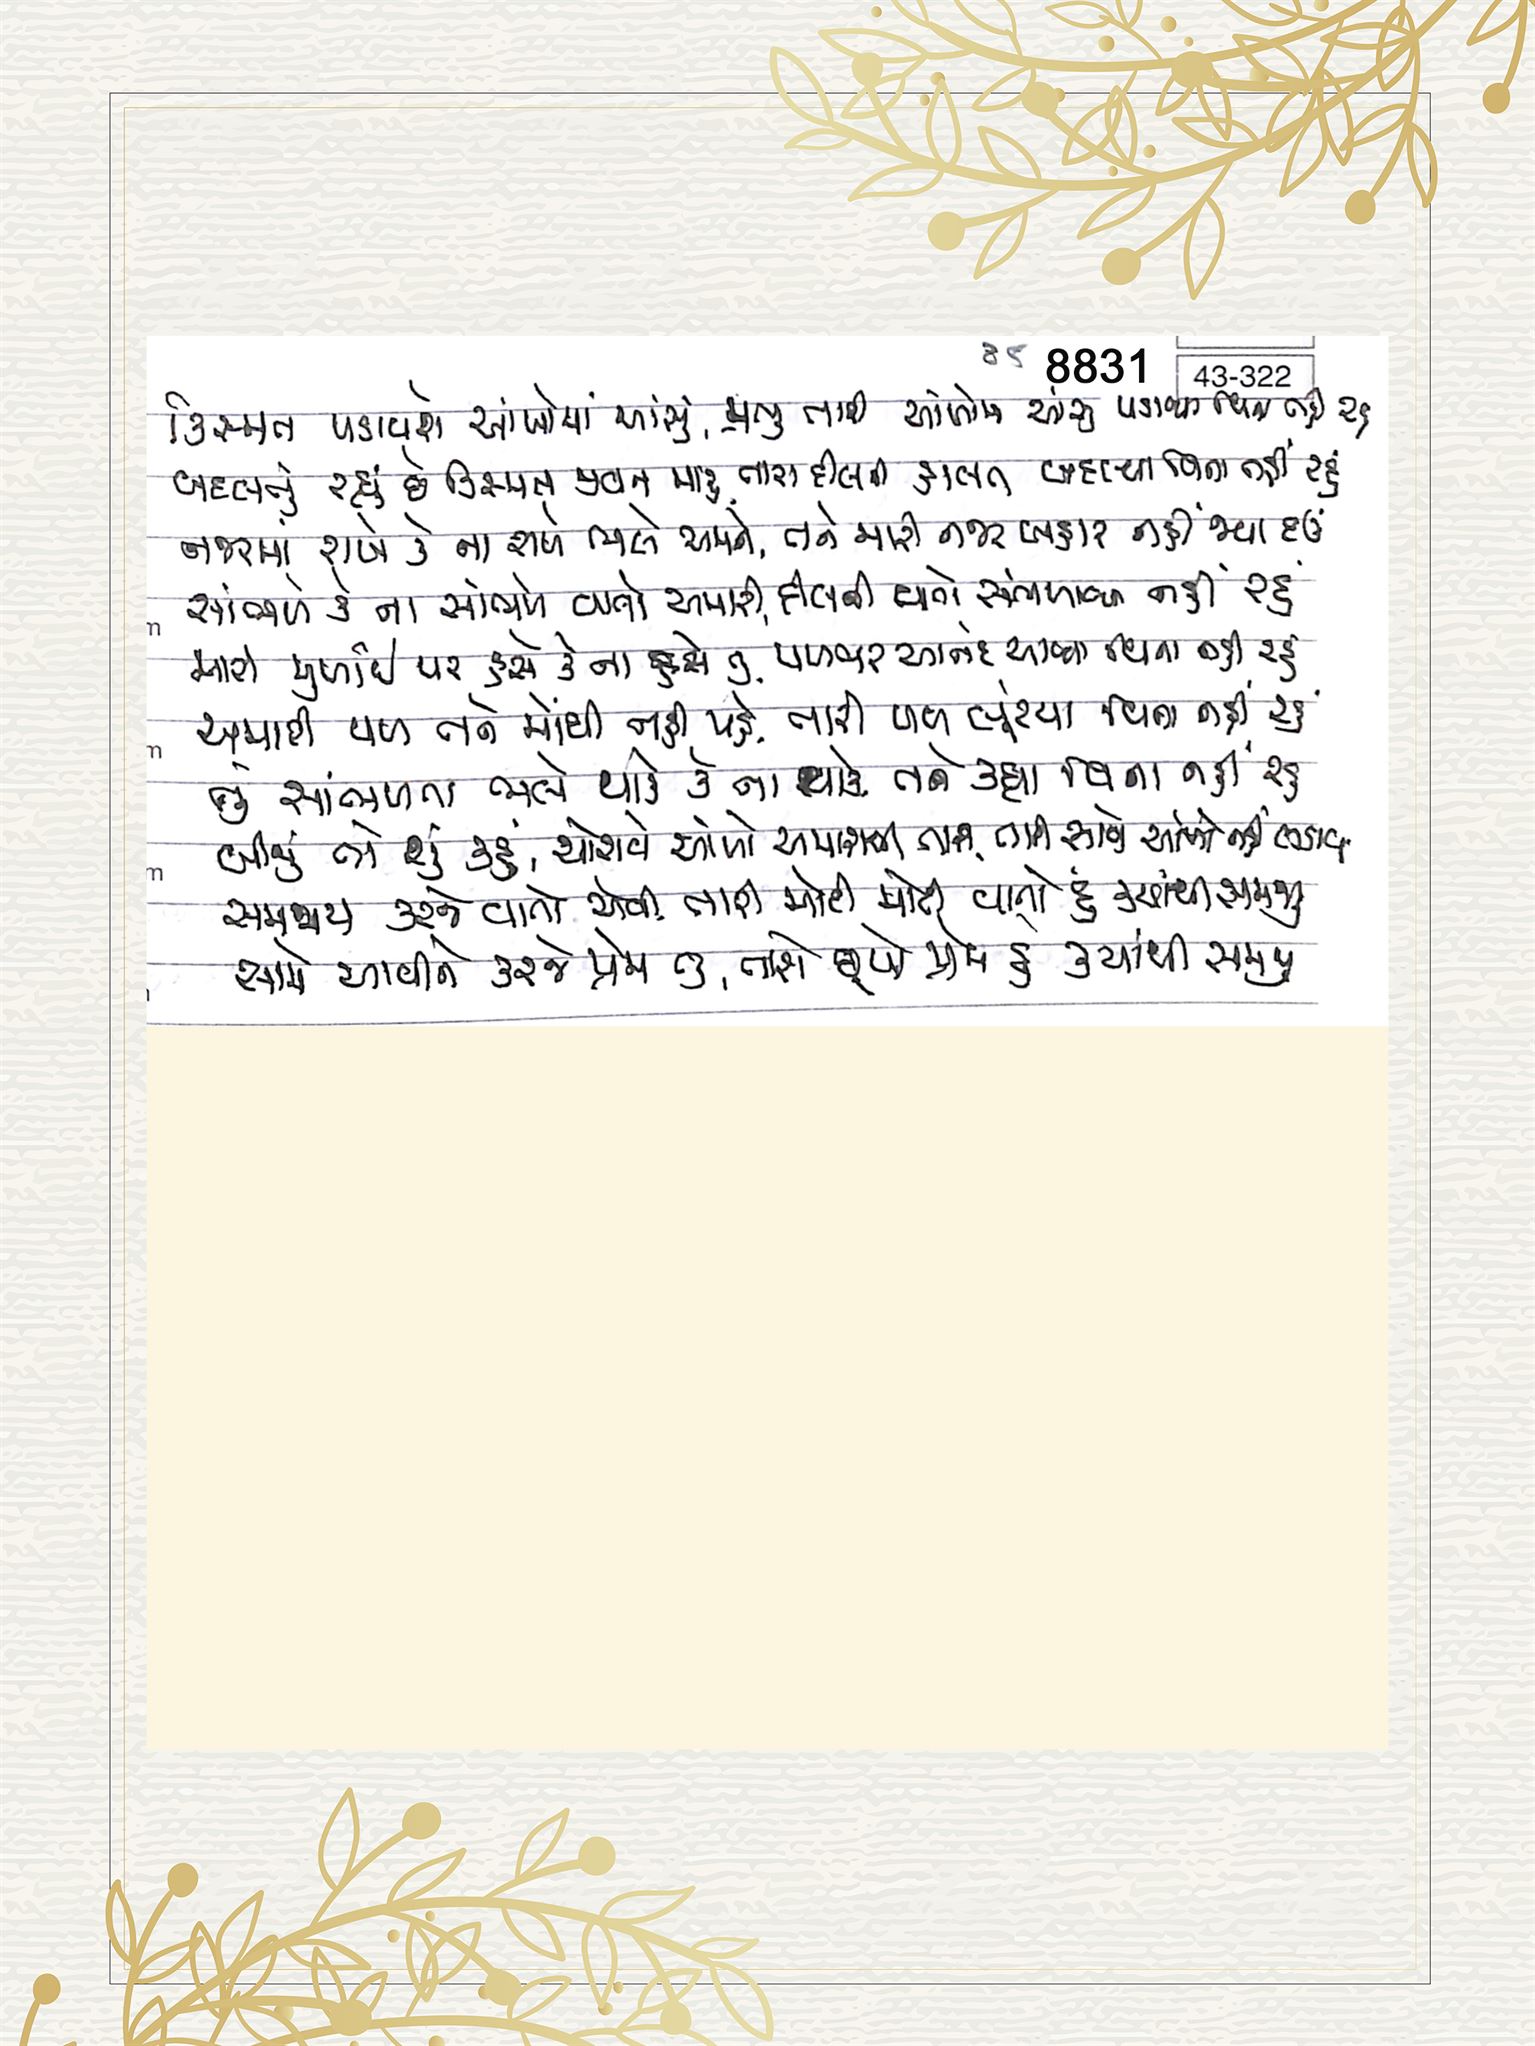 85 8831 43-322
કિસ્મત પડાવશે આંખોમાં આંસું, પ્રભુ તારી આંખોમાં આંસુ પડાવ્યા વિના નહીં રહું
બદલાતું રહ્યું છે કિસ્મત જીવન મારું, તારા દીલની હાલત બદલ્યા વિના નહીં રહું
નજરમાં રાખે કે ના રાખે ભલે અમને, તને મારી નજર બહાર નહીં જાવા દઉં
સાંભળે કે ના સાંભળે વાતો અમારી, દીલની વાતો સંભળાવ્યા નહીં રહું
મારી મુર્ખાઈ પર હસે કે ના હસે તું, પળભર આનંદ આવ્યા વિના નહીં રહું
અમારી પળ તને મોંઘી નહીં પડે, તારી પળ ચૂંટયા વિના નહીં રહું
તું સાંભળતા ભલે થાકે કે ના થાકે, તને કહ્યા વિના નહીં રહું
બીજું તો શું કહું, ચોરાવે આંખો અમારાથી તારી, તારી સામે આંખો નહીં
સમજાય કરજે વાતો એવી, તારી મોટી મોટી વાતો હું ક્યાંથી સમજું
સામે આવીને કરજે પ્રેમ તું, તારો છૂપો પ્રેમ હું ક્યાંથી સમજું